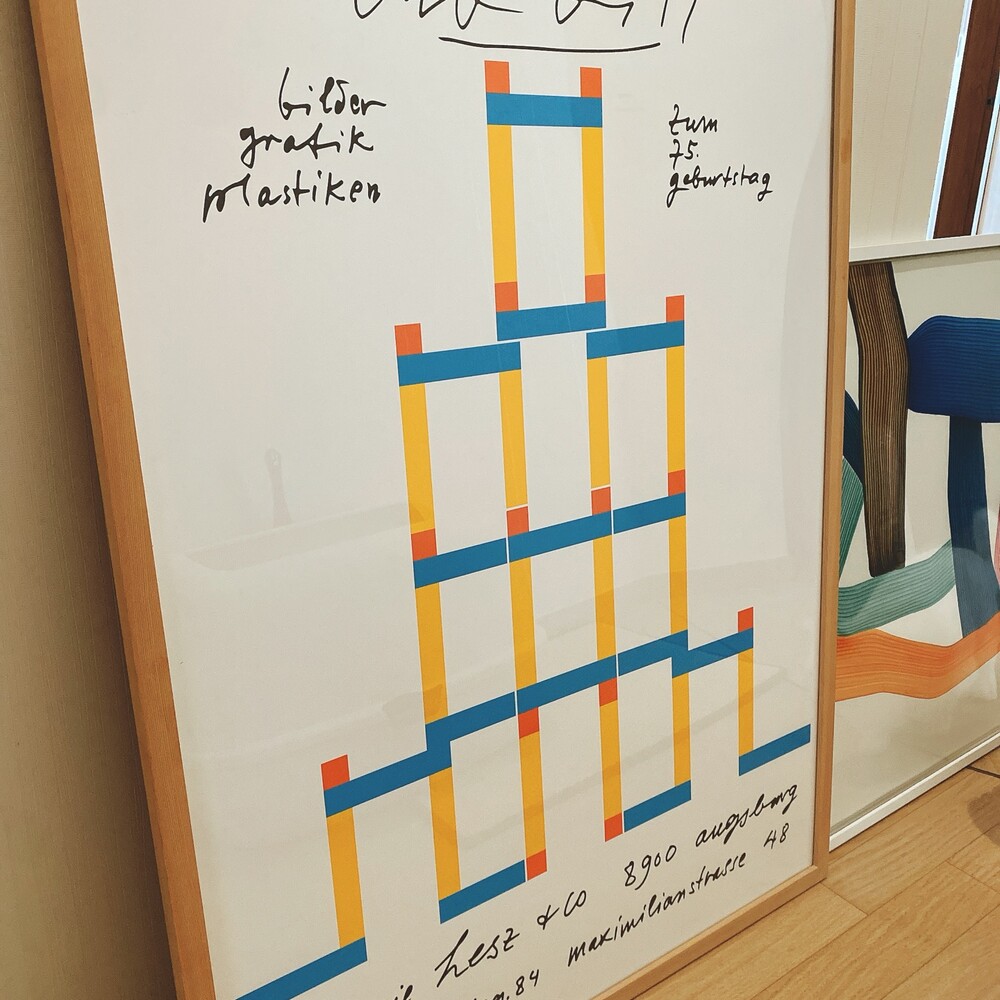 bilder
grafik
plastiken
zum
75.
geburtstag
hesz & co 8900 augsburg
84 maximilianstrasse 48